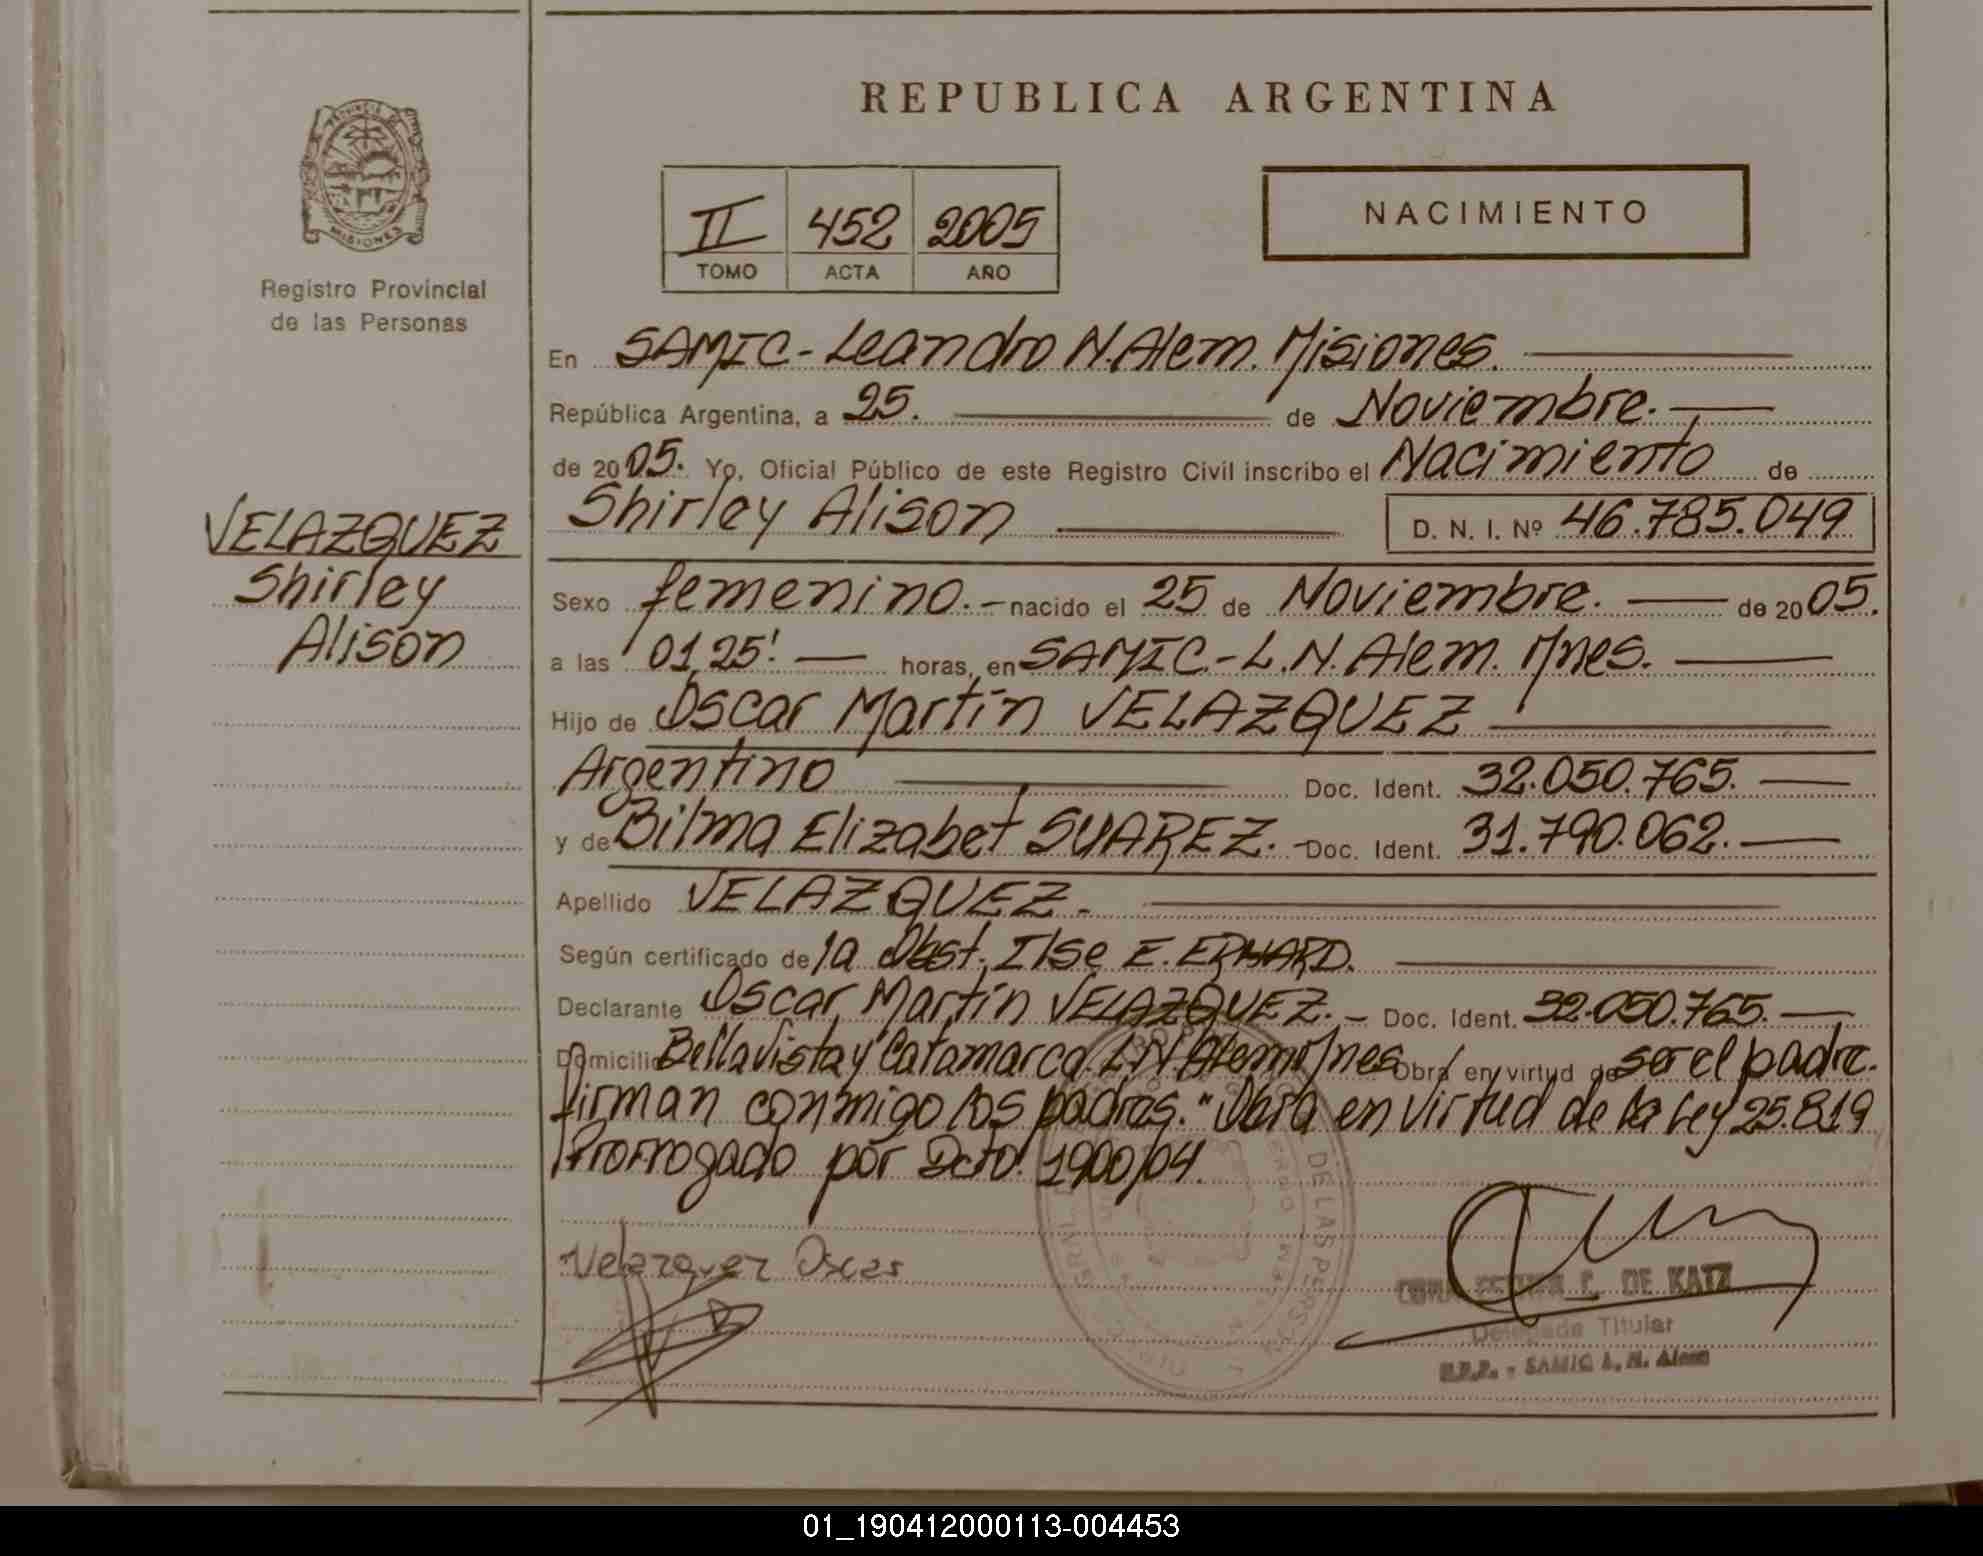 REPUBLICA ARGENTINA
PROVINCIA DE
MISIONES
Registro Provincial
de las Personas
II 452 2005
TOMO ACTA AÑO
NACIMIENTO
En SAMIC - Leandro N. Alem. Misiones.
República Argentina, a 25. de Noviembre.
de 2005. Yo, Oficial Público de este Registro Civil inscribo el Nacimiento de
Shirley Alison D. N. I. Nº 46.785.049
VELAZQUEZ
Shirley
Alison
Sexo femenino. - nacido el 25 de Noviembre. de 2005.
a las 01,25'. horas, en SAMIC. - L. N. Alem. Mnes.
Hijo de Oscar Martín VELAZQUEZ
Argentino Doc. Ident. 32.050.765.
y de Bilma Elizabet SUAREZ. - Doc. Ident. 31.790.062.
Apellido VELAZQUEZ.
Según certificado de la Obst. Ilse E. ERHARD.
Declarante Oscar Martín VELAZQUEZ. - Doc. Ident. 32.050.765.
Domicilio Bella Vista y Catamarca. L.N. Alem Mnes Obra en virtud de ser el padre.
firman conmigo los padres. "Obra en virtud de la Ley 25.819
Prorrogado por Dcto. 1900/04.
Velazquez Oscar
DE LAS PERSONAS
C. DE KATZ
Delegada Titular
R.P.P. - SAMIC L. N. Alem
01_190412000113-004453